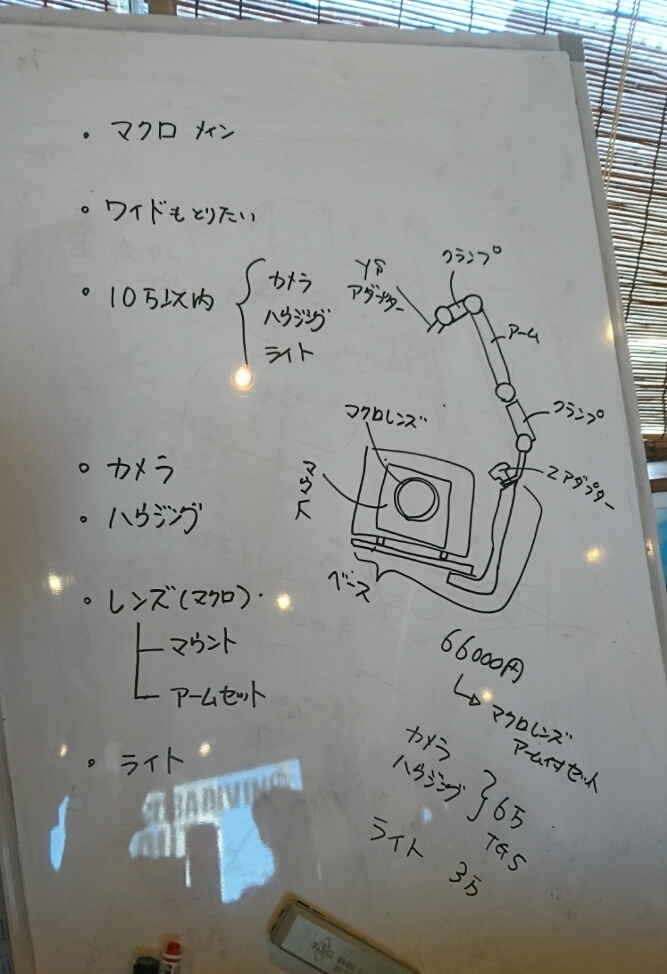 ・マクロ メイン
・ワイドもとりたい
・10万以内
カメラ
ハウジング
ライト
・カメラ
・ハウジング
・レンズ(マクロ)
マウント
アームセット
・ライト
クランプ
YS
アダプター
アーム
クランプ
マクロレンズ
Zアダプター
ベース
66000円
マクロレンズ
アーム付セット
カメラ
ハウジング
6万
TG5
ライト
3万